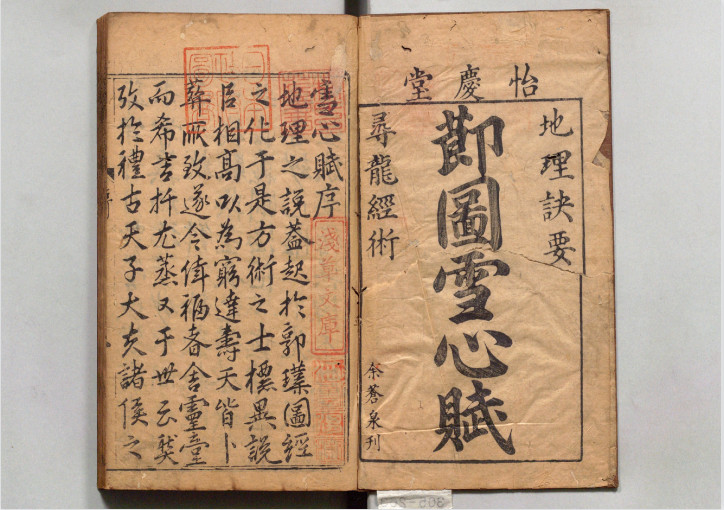 怡慶堂
地理訣要
莭圖雪心賦
尋龍經術
余蒼泉刊
雪心賦序
地理之說蓋起於郭璞圖經
之化于是方術之士標異說
相高以為窮達壽夭皆卜
葬所致遂令福者舍靈臺
而希吉扦尤蒸又于世云
攷於禮古天子大夫諸侯之
淺草文庫